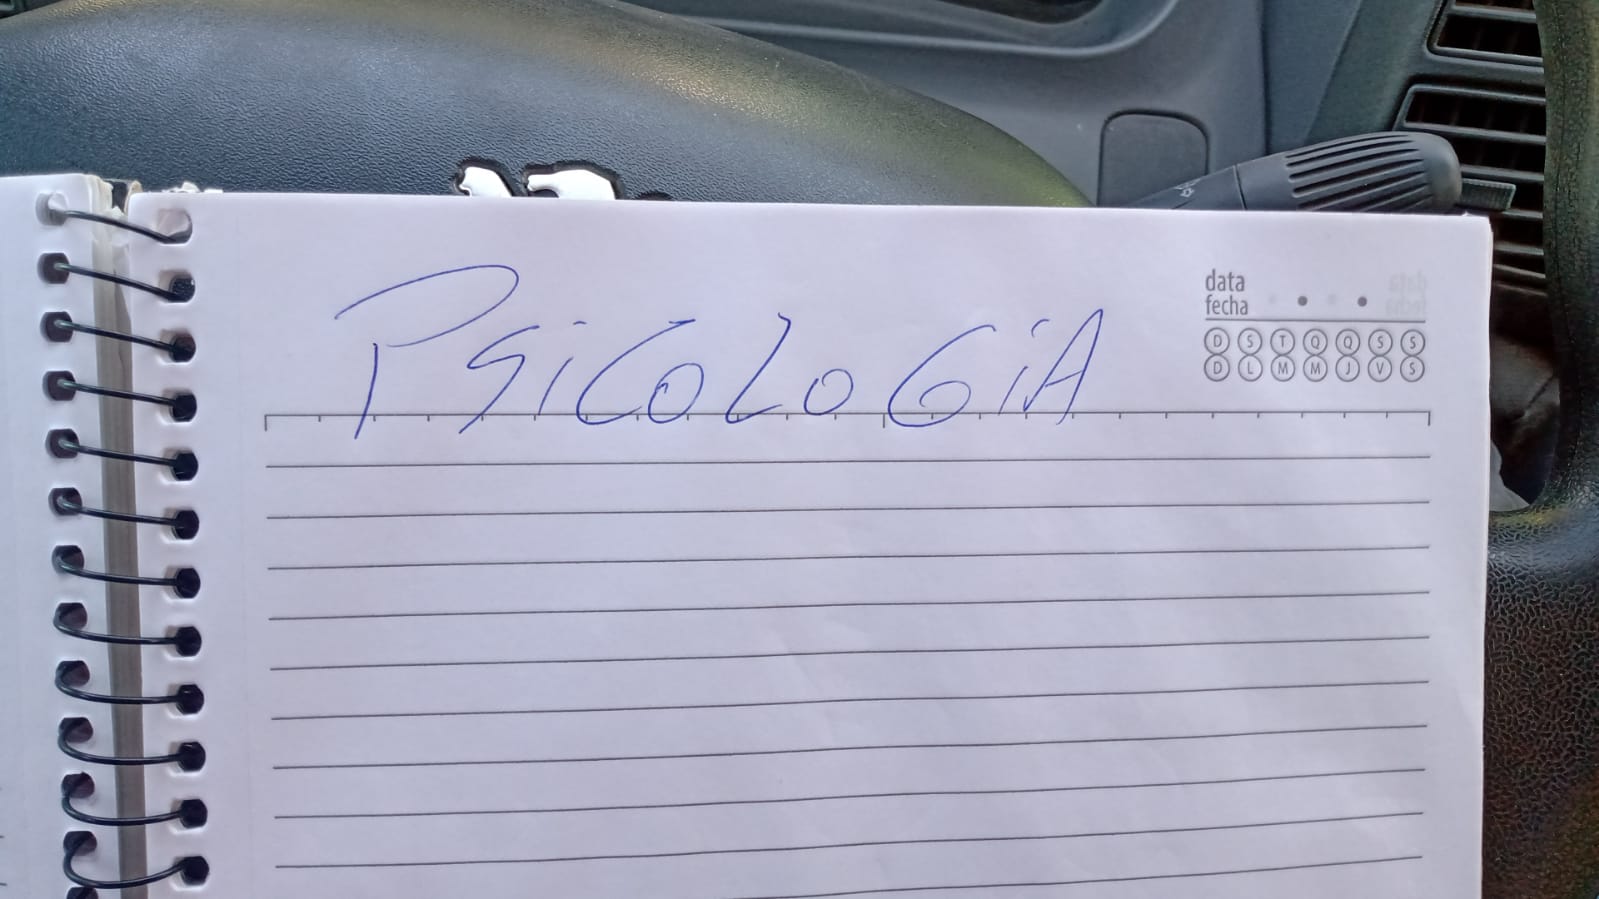 PSiCoLoGiA
data
fecha
D S T Q Q S S
D L M M J V S